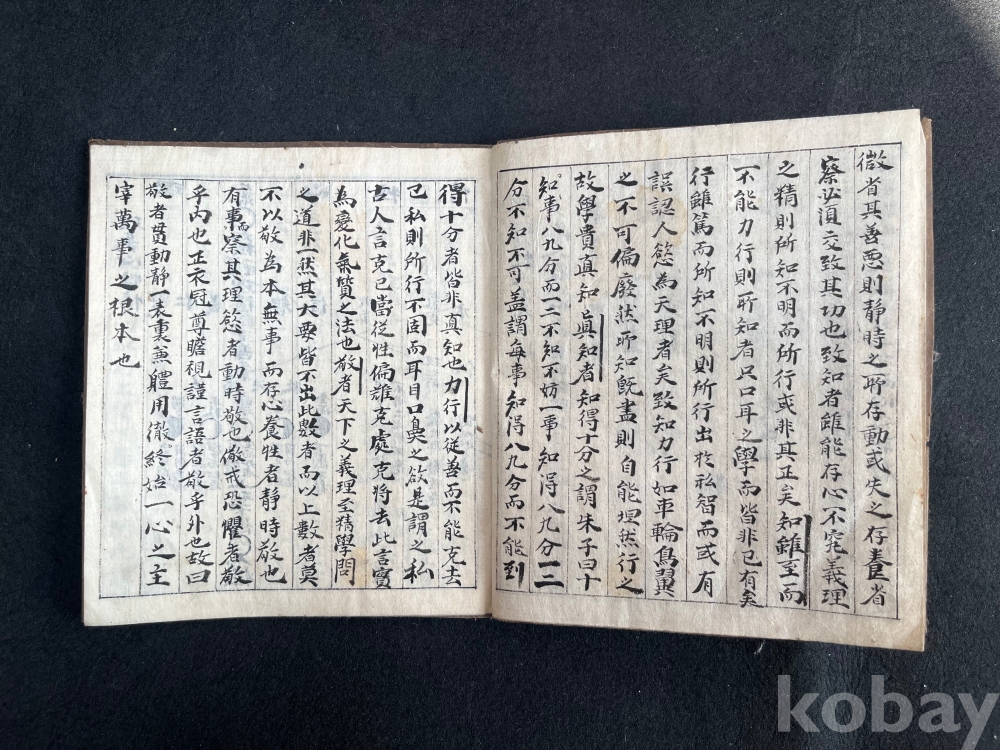 微省其善惡則靜時之所存動或失之存養省
察必湏交致其功也致知者雖能存心不究義理
之精則所知不明而所行或非其正矣知雖至而
不能力行則所知者只口耳之學而皆非己有矣
行雖篤而所知不明則所行出於私智而或有
誤認人慾爲天理者矣致知力行如車輪鳥翼
之不可偏廢然所知旣盡則自能埋然行之
故學貴真知真知者知得十分之謂朱子曰十
知事八九分而一二不知不妨一事知得八九分一二
分不知不可盖謂每事知得八九分而不能到
得十分者皆非真知也力行以從善而不能克去
己私則所行不固而耳目口鼻之欲是謂之私
古人言克己當從性偏難克處克將去此言實
為變化氣質之法也敬者天下之義理至精學問
之道非一然其大要皆不出此數者而以上數者莫
不以敬為本無事而存心養性者靜時敬也
有事而察其理慾者動時敬也儆戒恐懼者敬
乎內也正衣冠尊瞻視謹言語者敬乎外也故曰
敬者貫動靜一表裏兼軆用徹終始一心之主
宰萬事之根本也
kobay